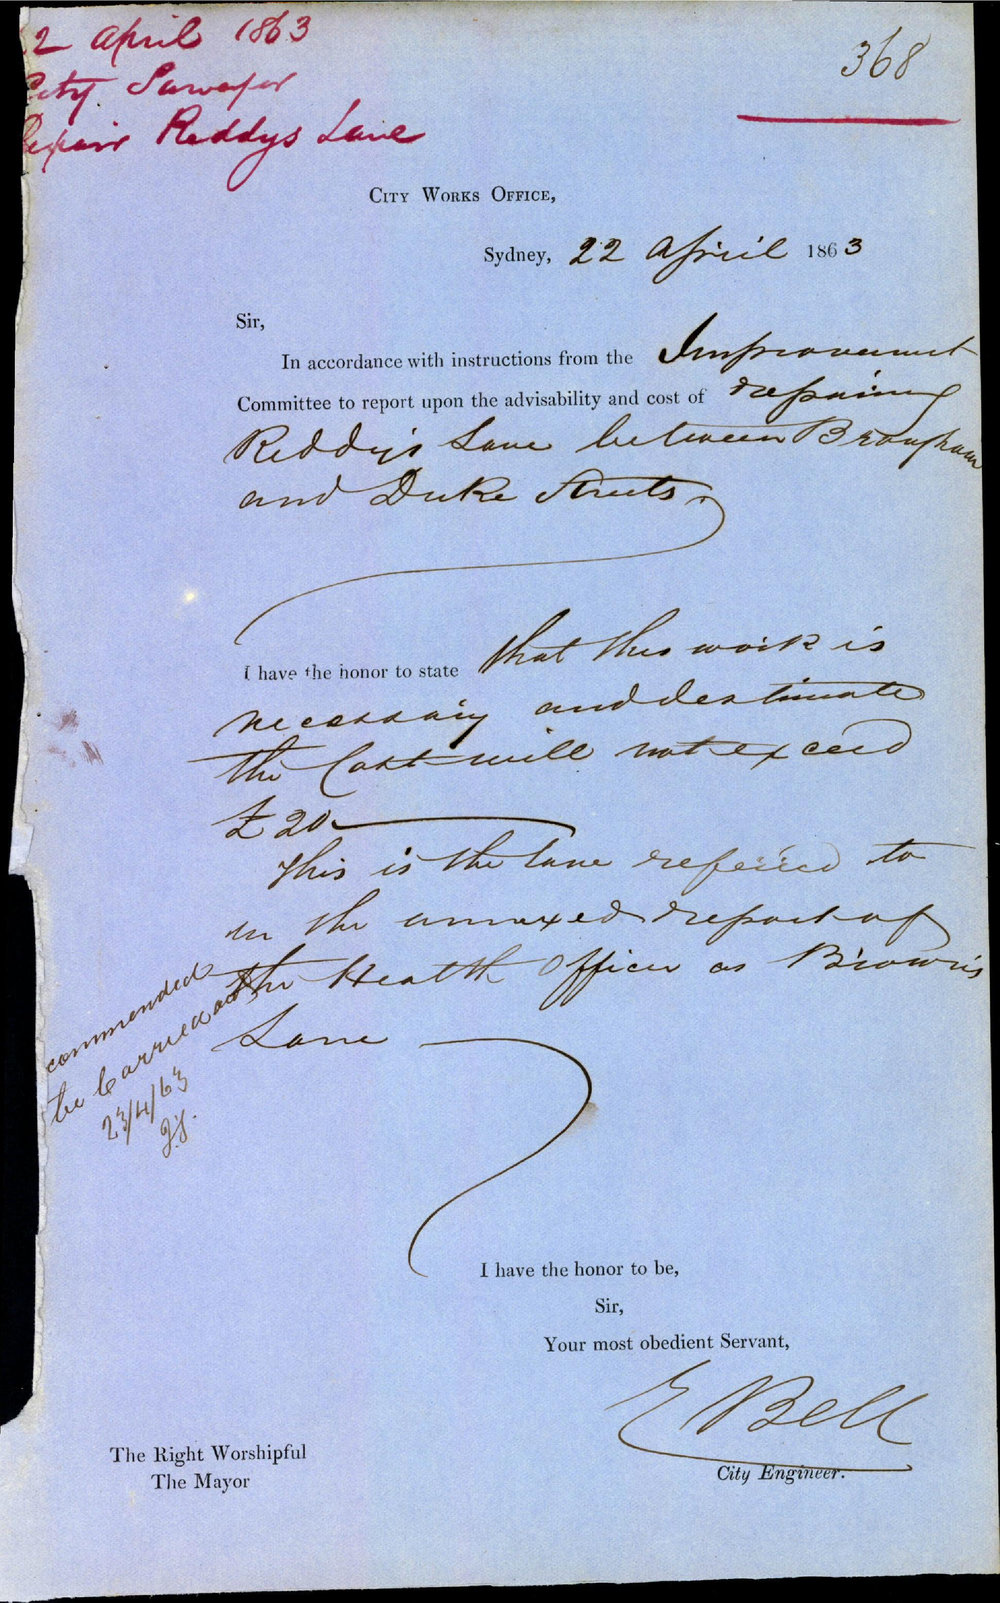 22 April 1863
City Surveyor
Repair Reddys Lane
368
City Works Office,
Sydney, 22 April 1863
Sir,
In accordance with instructions from the Improvement
Committee to report upon the advisability and cost of repairing
Reddy's Lane between Brougham
and Duke Streets.
I have the honor to state that this work is
necessary and estimate
the Cost will not exceed
£20
This is the lane referred to
in the annexed report of
the Health Officer as Brown's
Lane
commended
be Carried out
23/4/63
I have the honor to be,
Sir,
Your most obedient Servant,
E Bell
City Engineer.
The Right Worshipful
The Mayor